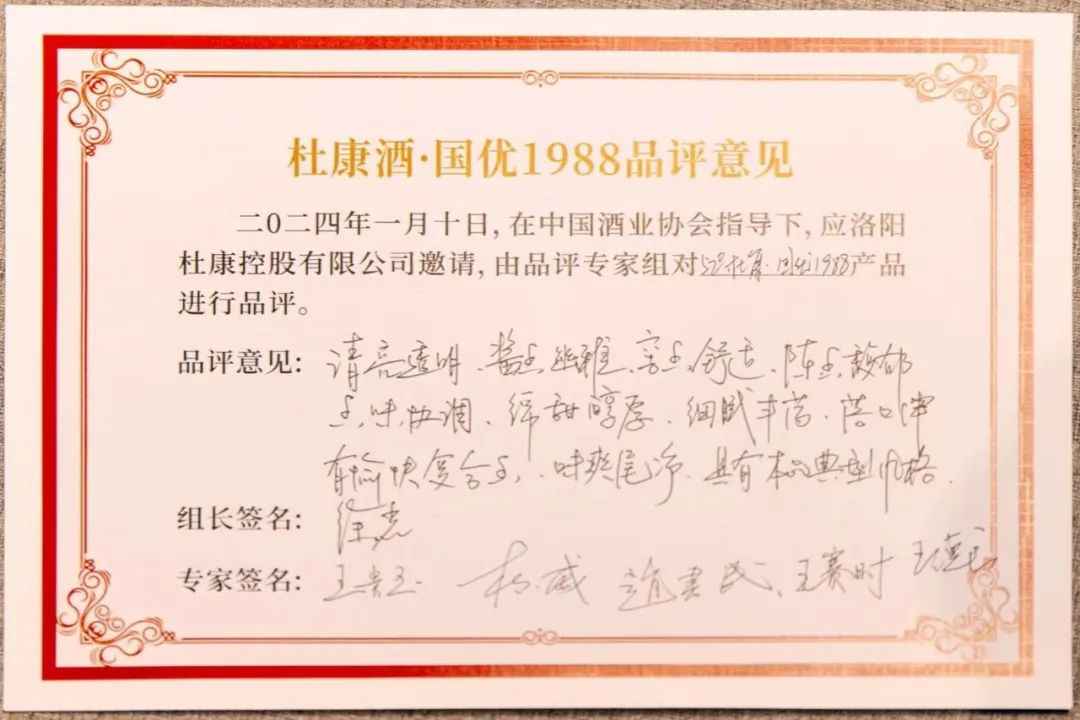 杜康酒·国优1988品评意见
二0二四年一月十日,在中国酒业协会指导下,应洛阳
杜康控股有限公司邀请,由品评专家组对杜康·国优1988产品
进行品评。
品评意见: 清亮透明、酱香幽雅、窖香舒适、陈香馥郁
香味协调、绵甜醇厚、细腻丰满、落口
有愉快复合香、味爽尾净、具有本品典型风格.
组长签名:
专家签名: 王贵玉 杨威 赵书民、王赛时 王德良